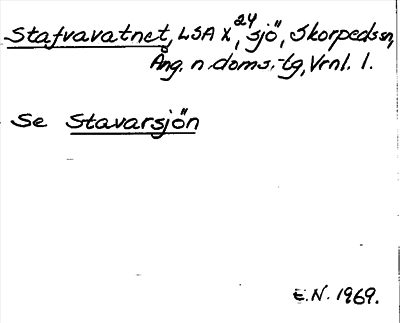 Stafvavatnet, LSA X, 24 sjö, Skorpedssn,
Ång. n. doms.-tg, Vrnl. 1.
Se Stavarsjön
E.N. 1969.